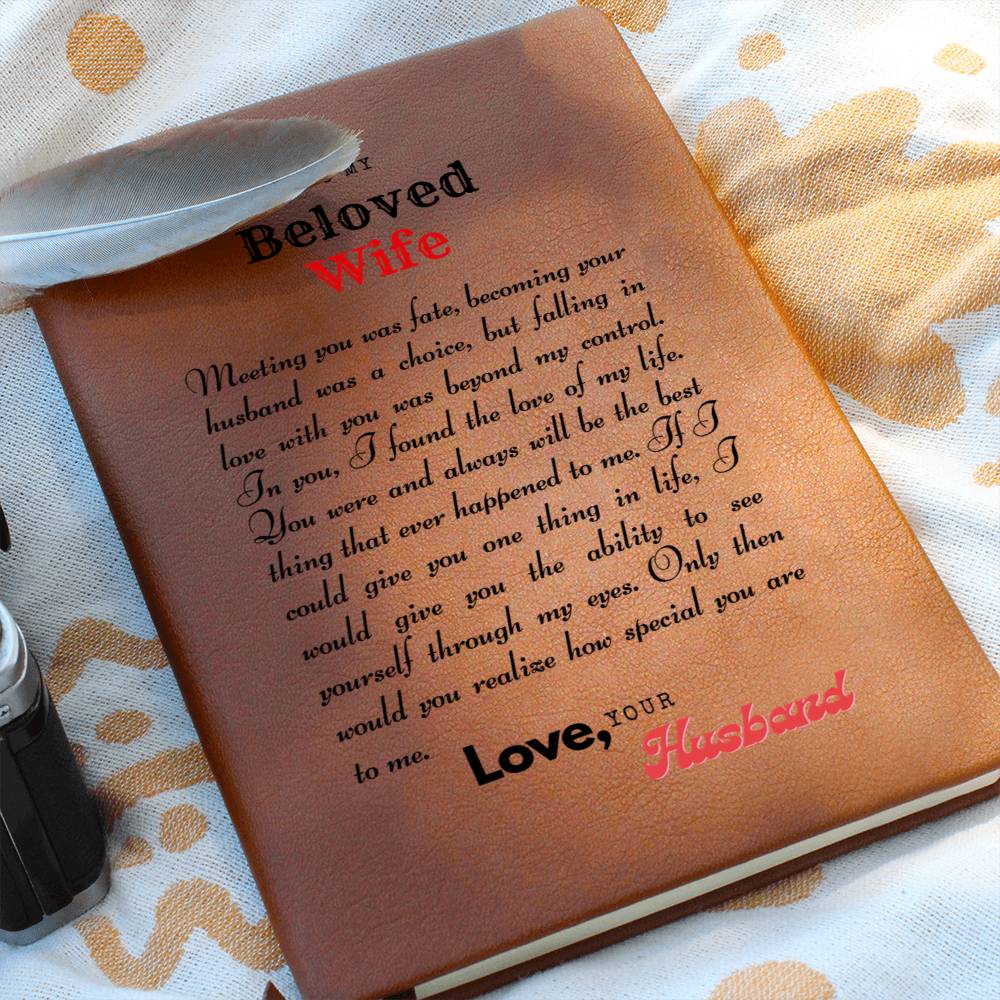 MY
Beloved
Wife
Meeting you was fate, becoming your
husband was a choice, but falling in
love with you was beyond my control.
In you, I found the love of my life.
You were and always will be the best
thing that ever happened to me. If I
could give you one thing in life, I
would give you the ability to see
yourself through my eyes. Only then
would you realize how special you are
to me.
Love, YOUR
Husband